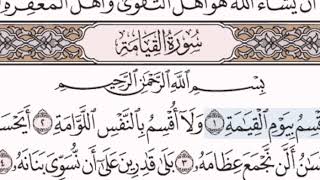 أن يشاء الله هو أهل التقوى وأهل المغفرة
سُورَةُ القِيَامَةِ
بِسْمِ اللَّهِ الرَّحْمَٰنِ الرَّحِيمِ
قْسِمُ بِيَوْمِ الْقِيَٰمَةِ ١ وَلَا أُقْسِمُ بِالنَّفْسِ اللَّوَّامَةِ ٢ أَيَحْسَ
سَٰنُ أَلَّن نَّجْمَعَ عِظَامَهُ ٣ بَلَىٰ قَٰدِرِينَ عَلَىٰ أَن نُّسَوِّيَ بَنَانَهُ ٤